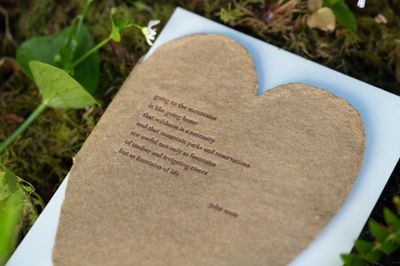 going to the mountains
is like going home
that wildness is a necessity
and that mountain parks and reservations
are useful not only as fountains
of timber and irrigating rivers
but as fountains of life
john muir